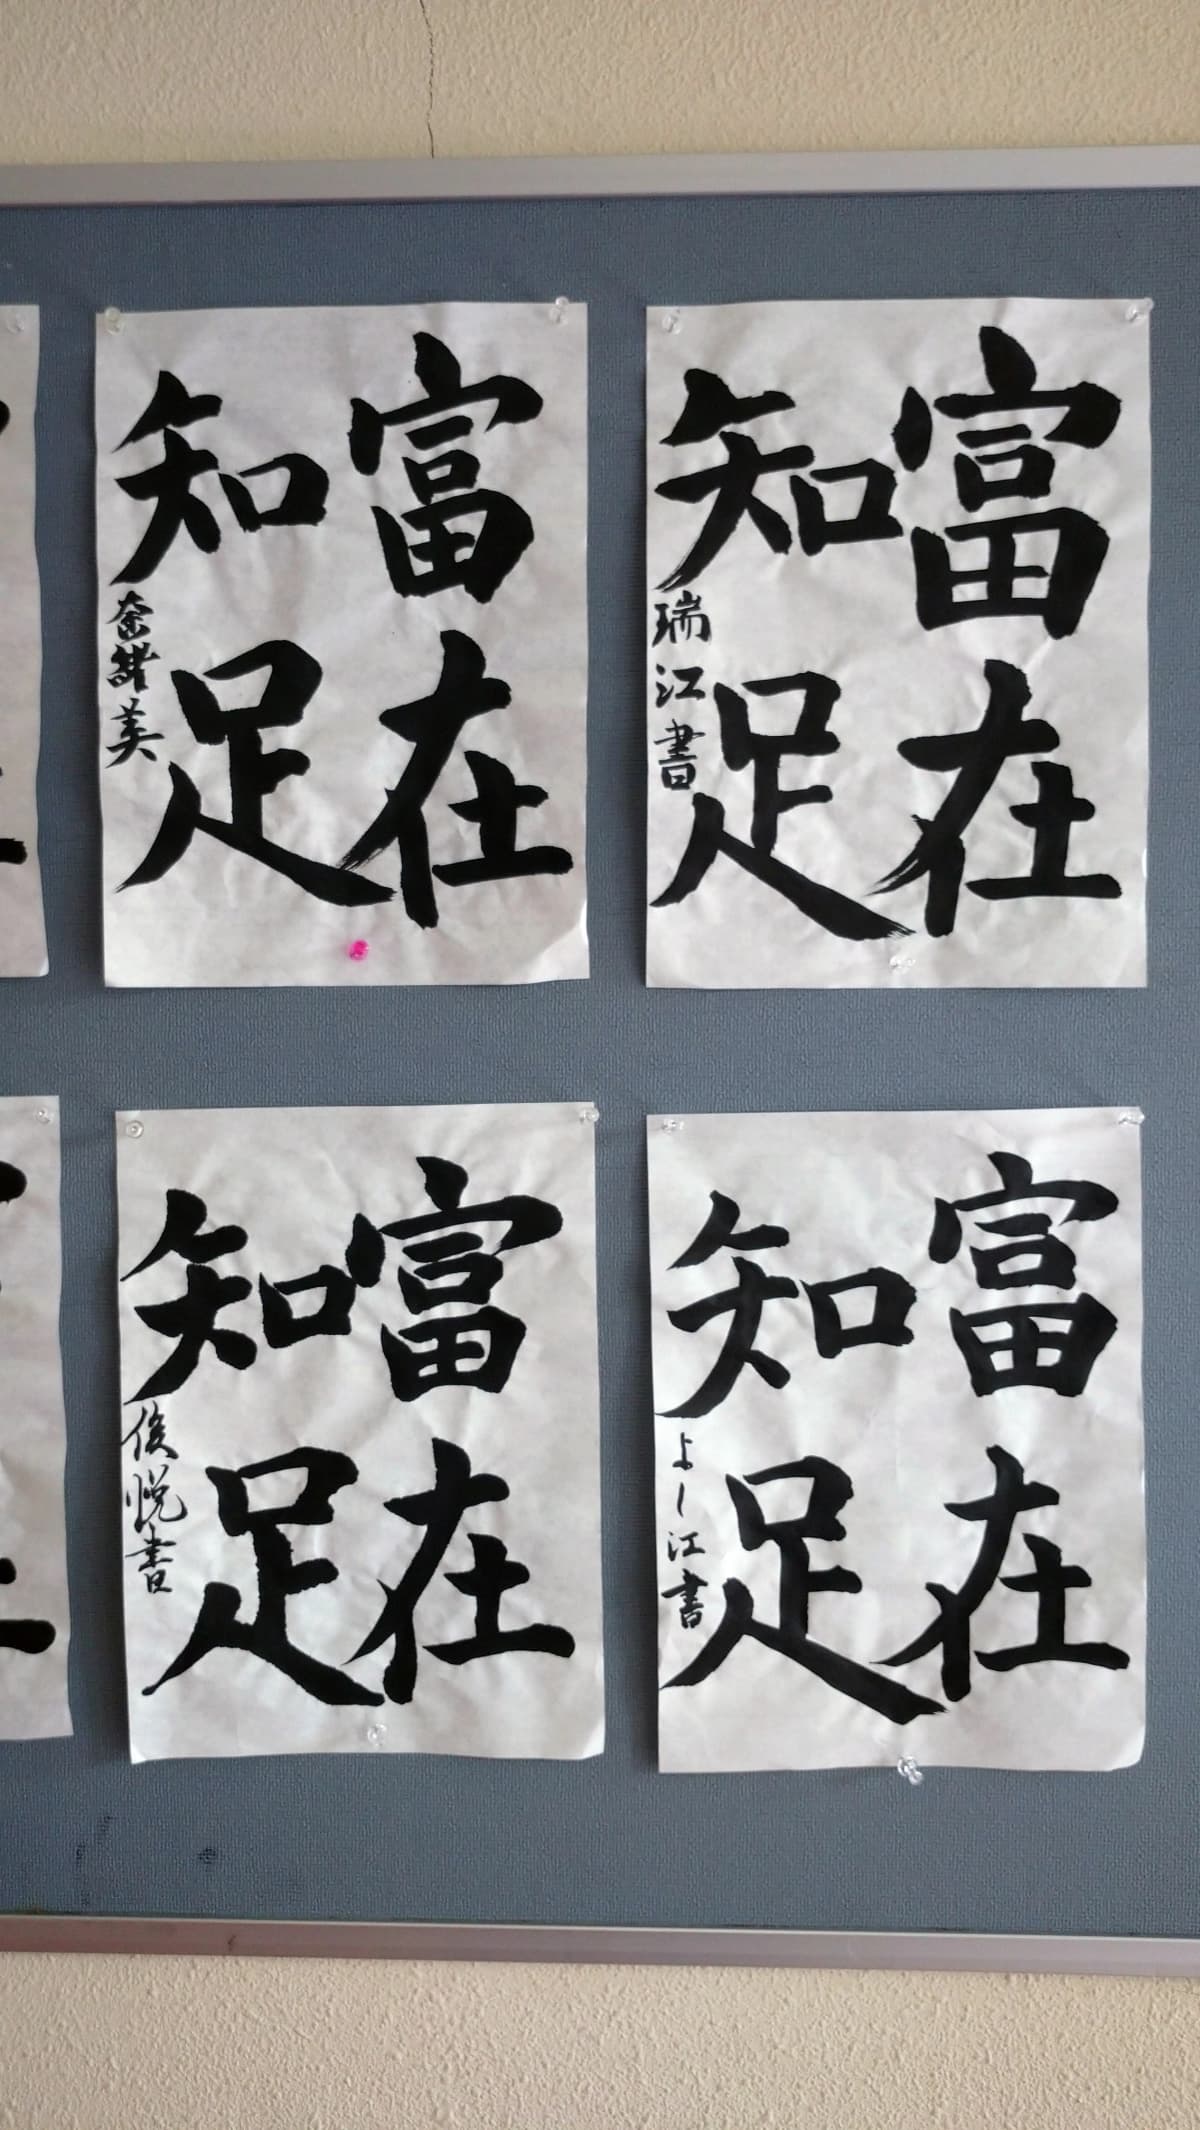 富在
知足
奈緒美
富在
知足
瑞江書
富在
知足
俊悦書
富在
知足
よし江書